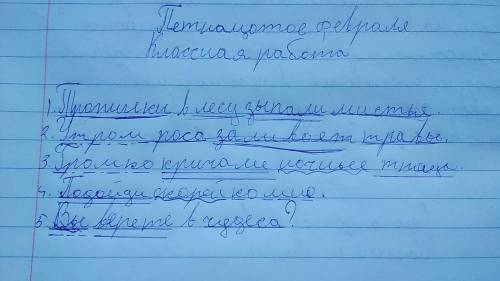 Петнацотое февраля
Классная работа
1. Тропинки в лесу зыпали мистья.
2. Утром роса заливоет травы.
3. Громко кричами ночные птицы.
4. Подойди скорей ко мно.
5. Вы верете в чудеса?